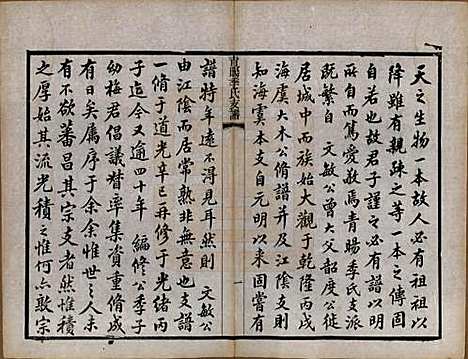 天之生物一本故人必有祖祖以
降雖有親疎之等一本之傳固
自若也故君子謹之必有譜以明
所自而篤愛敬焉青暘季氏支派
既繁自 文敏公曾大父韶度公徙
居城中而族始大觀于乾隆丙戌
海虞大木公脩譜并及江陰支則
知海虞本支自元明以來固嘗有
青暘季氏支譜
一
譜特年遠不得見耳然則 文敏公
由江陰而居常熟非無意也支譜
一脩于道光辛巳再脩于光緒丙
子迄今又逾四十年 編修公季子
幼梅君倡議督率集資重脩成
有日矣屬序于余余惟世之人未
有不欲蕃昌其宗支者然惟積
之厚始其流光積之惟何亦敦宗